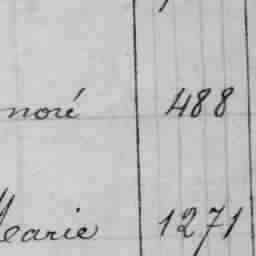 noré 488
Marie 1271